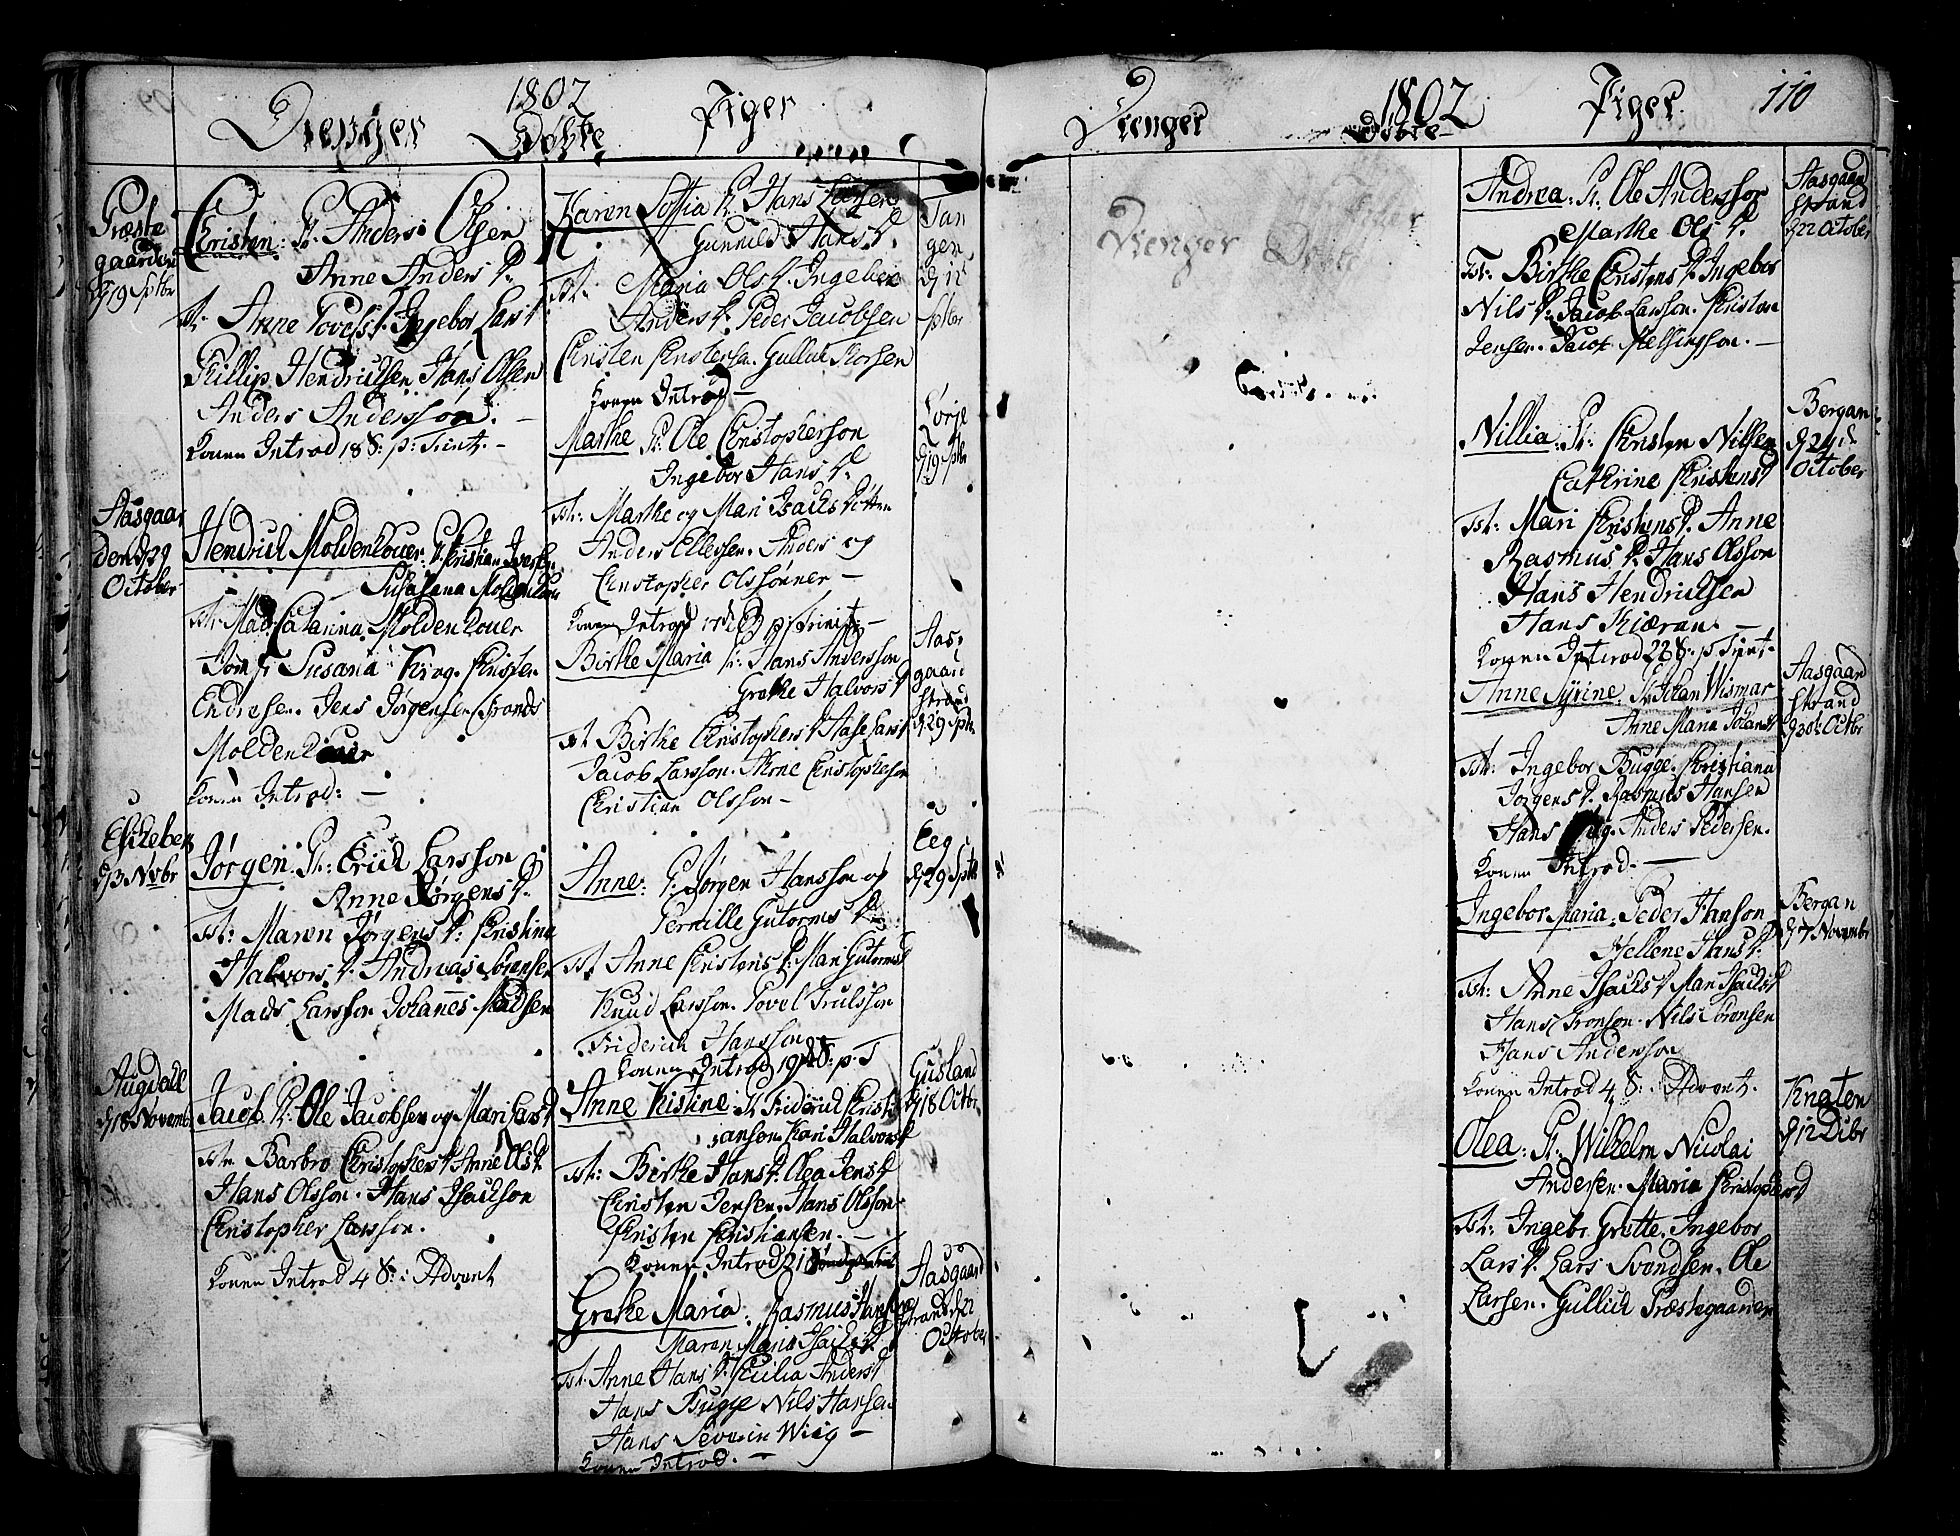 1802
Drenger Døbte Piger
Præste
gaarden
d 19 Sptbr
Christen: F. Anders Olsen
Anne Anders D.
Tst. Anne Povels D. Ingebor Lars D
Phillip Hendrichsen Hans Olsen
Anders Andersson. -
Konen Introd 18 S: p: Trinit. -
Aasgaar
den d 29
October
Hendrich Moldenhouer. F. Christian Iversen
Susasana Moldenhouer
Tst: Mad: Catarina Moldenhouer
Jomfr Susana Krog. Christen
Endresen. Jens Jørgensen
Moldenhouer
Konen Introd: -
Eskeben
d 3 Novbr
Jørgen: F: Erich Larsson
Anne Jørgens D.
Tst: Maren Jørgens D: Christina
Halvors D. Andreas Sørensen
Mads Larsson Johanes Madsen
Augedal
d 18 Novemb.
Jacob F: Ole Jacobsen og Mari Lars D
Tst. Barbro Christophers D Anne Ols D.
Hans Olsson. Hans Isachson
Christopher Larsson.
Konen Introd 4 S: i Advent
Karen Soffia F. Hans
Gunnild Hans D.
Tst: Maria Ols D. Ingebor
Anders D. Peder Jacobsen
Christen Christensen. Gulluch Thorsen
Konen Introd -
Tan
gen
d 12
Sptbr
Marthe F: Ole Christopherson
Ingebor Hans D.
Tst: Marthe og Mari Isachs Døttre
Anders Ellefsen. Anders og
Christopher Olssønner -
Konen Introd p: Trinit: -
d 19 Sptbr
Birthe Maria F: Hans Andersson
Grethe Halvors D
Tst Birthe Christophers D Aase Lars D
Jacob Larsson. Arne Christopherson
Christian Olsson -
Aas
gaard
strand
d 29 Sptbr
Anne: F. Jørgen Hansson og
Pernille Gutorms D.
Tst Anne Christens D. Mari Gutorms D
Knud Larsson. Povel Trulsson
Friderich Hansson
Konen Introd 19 S: p. T
Eeg
d 29 Sptbr
Anne Kistine: F Friderich Christi
ansen. Kari Halvors D
Tst: Birthe Hans D. Olea Jens D
Christen Jensen. Hans Olsson
Christen Christiansen. -
Konen Introd 21
Gusland
d 18 Octbr.
Grethe Maria: Rasmus Hansen
Maren Maria Isachs D
Tst. Anne Hans D. Cicilia Anders D
Hans Bugge Nils Hansen
Hans Severin Wiig -
Konen Introd. -
Aasgaard
strand d 22
October
1802 110
Drenger Døbte Piger
Drenger Døbte
Andrea: F. Ole Andersson
Marthe Ols D.
Tst: Birthe Christens D. Ingebor
Nils D: Jacob Larsson. Christen
Jensen. Jacob . -
Aasgaard
strand
d 22 October
Nillia: F: Christen Nilsen
Cathrine Christens D
Tst: Mari Christens D. Anne
Rasmus D. Hans Olsson
Hans Hendrichsen
Hans Kiæran. -
Konen Introd 22 S. p Trinit.
Bergan
d 24
October
Anne Syrine: F. Johan Wismar
Anne Maria Johans D
Tst: Ingebor Bugge. Christiana
Jørgens D. Rasmus Hansen
Hans . Anders Pedersen.
Konen Introd. -
Aasgaard
strand
d 30 Octbr
Ingebor Maria: Peder Hanson
Hellene Hans D.
Tst: Anne Isachs D Mari Isachs D
Hans Tronson. Nils Sørensen
Hans Andersson
Konen Introd 4 S: i Advent.
Bergan
d 7 Novembr
Olea: F. Wilhelm Nicolai
Andersen. Maria Christophers D
Tst: Ingebr Grette. Ingebor
Lars D. Lars Svendsen. Ole
Larsen. Gulluch Præstegaarden
Knatten
d 12 Dibr